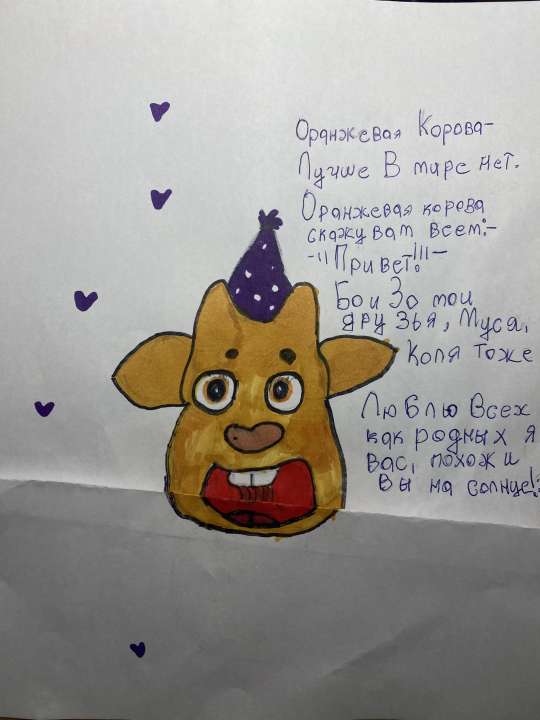 Оранжевая Корова-
Лучше В мире нет.
Оранжевая корова
скажу вам всем:-
-"Привет!!!-
Бои Зо мои
друзья, Муся,
Коля тоже
Люблю Всех
как родных я
вас, похожи
Вы на солнце!